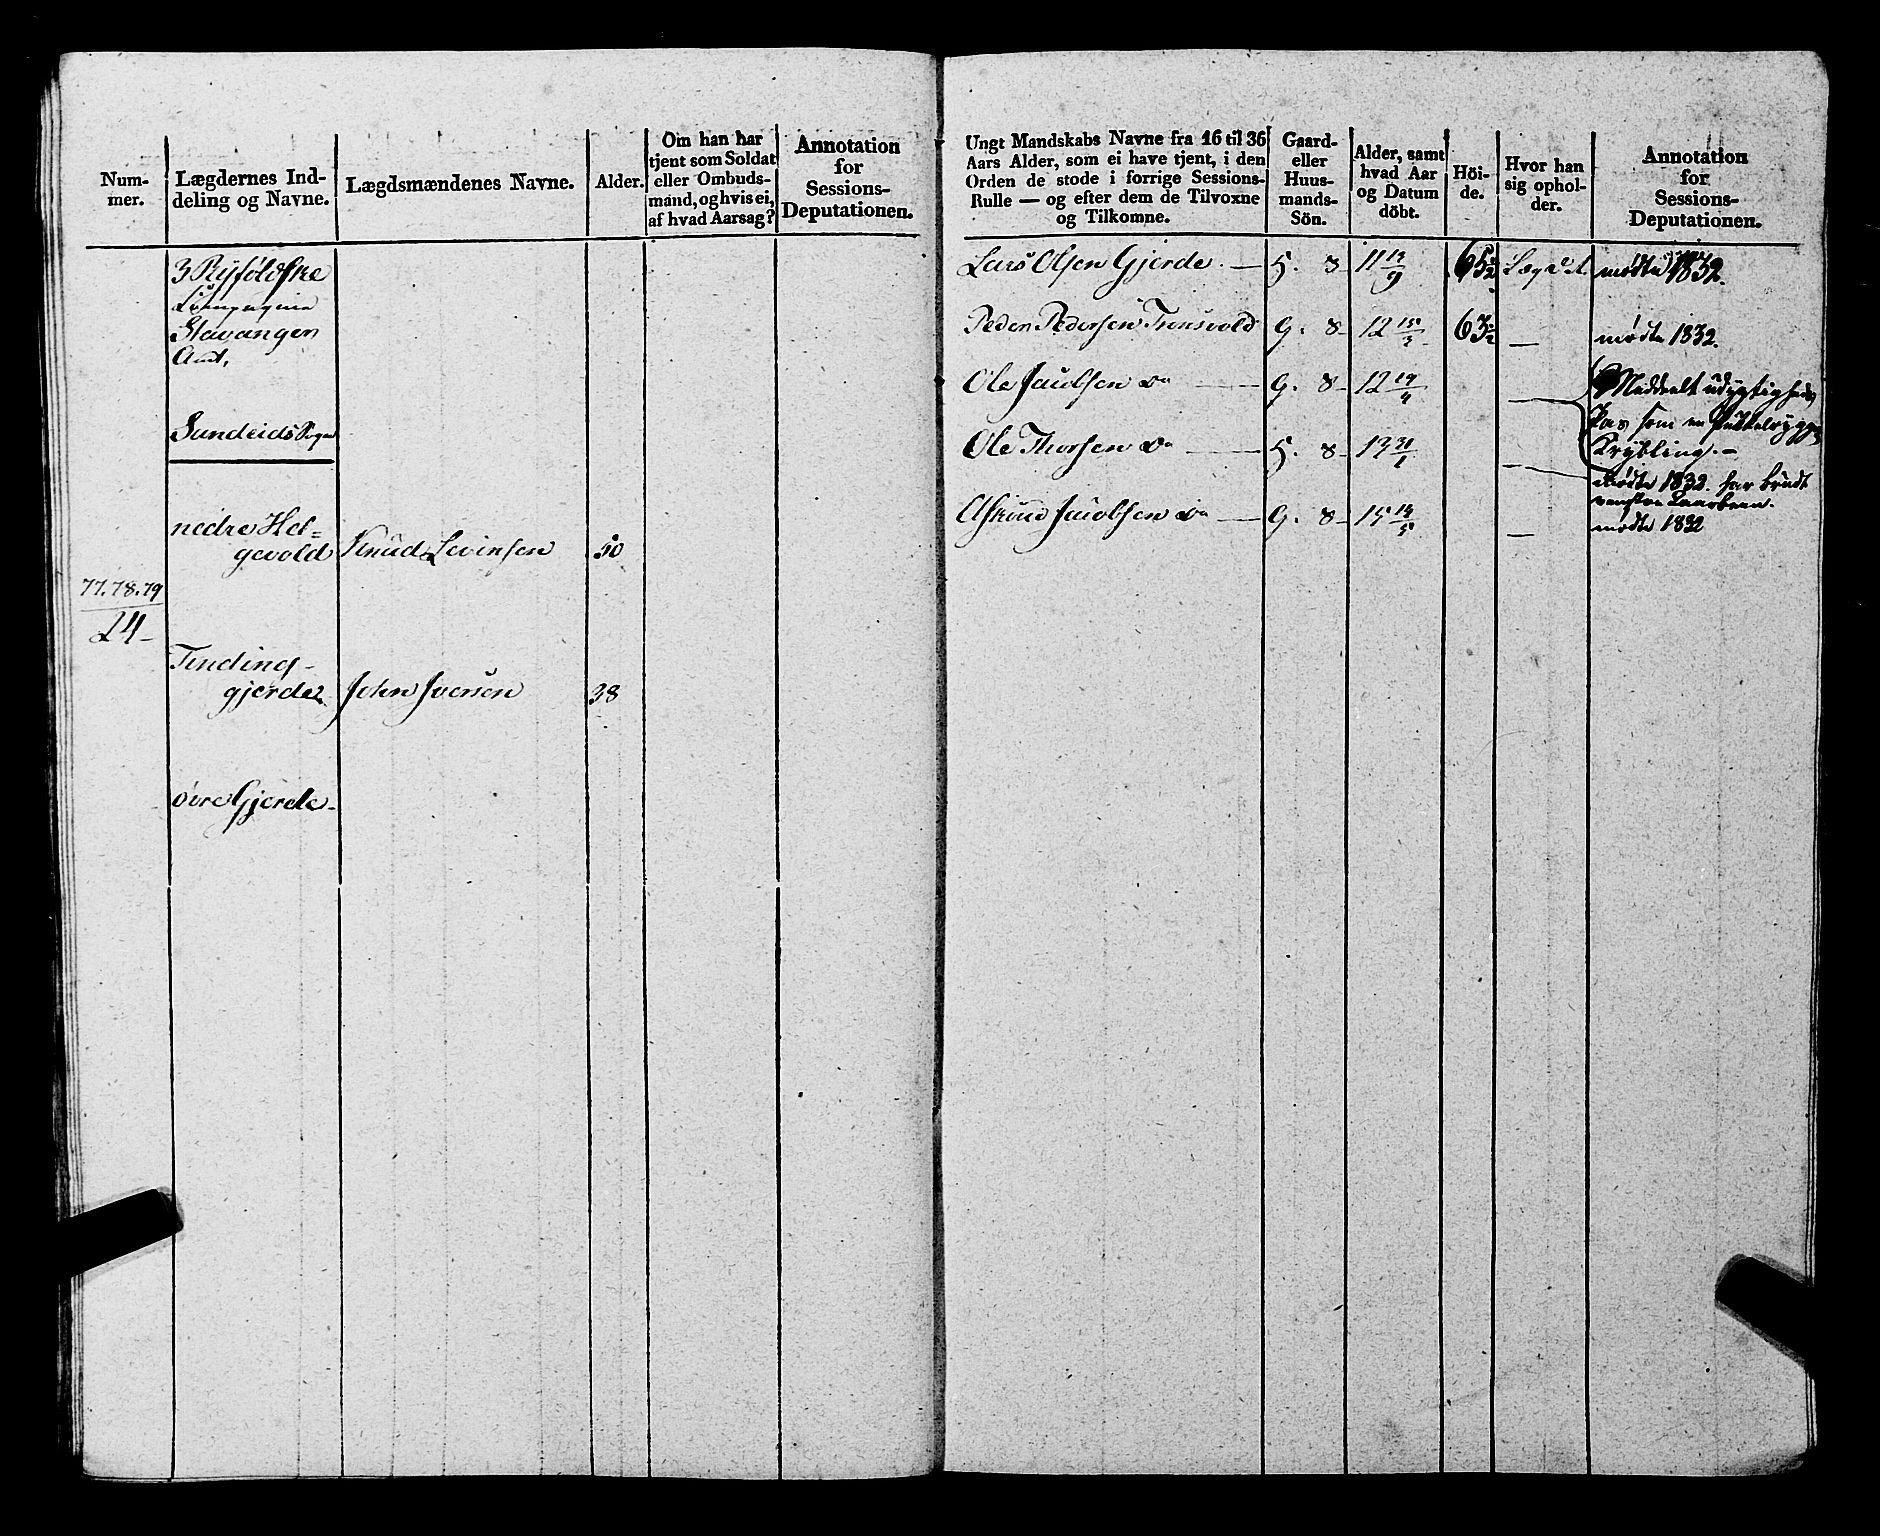 Num-
mer.
Lægdernes Ind-
deling og Navne.
Lægdsmændenes Navne.
Alder.
Om han har
tjent som Soldat
eller Ombuds-
mand, og hvis ei,
af hvad Aarsag?
Annotation
for
Sessions-
Deputationen.
3 Ryfølgske
Compagnie
Stavanger
Amt,
Sandeids Sogn
nedre Hel-
gevold Knud Levinsen 50
77.78.79
24-
Tindings-
gjerde John Iversen 38
øvre Gjerde
Ungt Mandskabs Navne fra 16 til 36
Aars Alder, som ei have tjent, i den
Orden de stode i forrige Sessions-
Rulle — og efter dem de Tilvoxne
og Tilkomne.
Gaard-
eller
Huus-
mands-
Sön.
Alder, samt
hvad Aar
og Datum
döbt.
Höi-
de.
Hvor han
sig ophol-
der.
Annotation
for
Sessions-
Deputationen.
Lars Olsen Gjerde — 8 11 65½ Lægdet mødte 1832.
Peder Pedersen G. 8 12 15/3 63½ — mødte 1832.
Ole Jacobsen do — G. 8 12 19/4 —
Meddeelt udygtigheds
Pas som en Pukkelrygget
Krybling.—
Ole Thorsen do — 8 13 31/1 —
mødte 1832. har brudt
venstre Laarbeen.
Jacobsen do — G. 8 15 —
mødte 1832